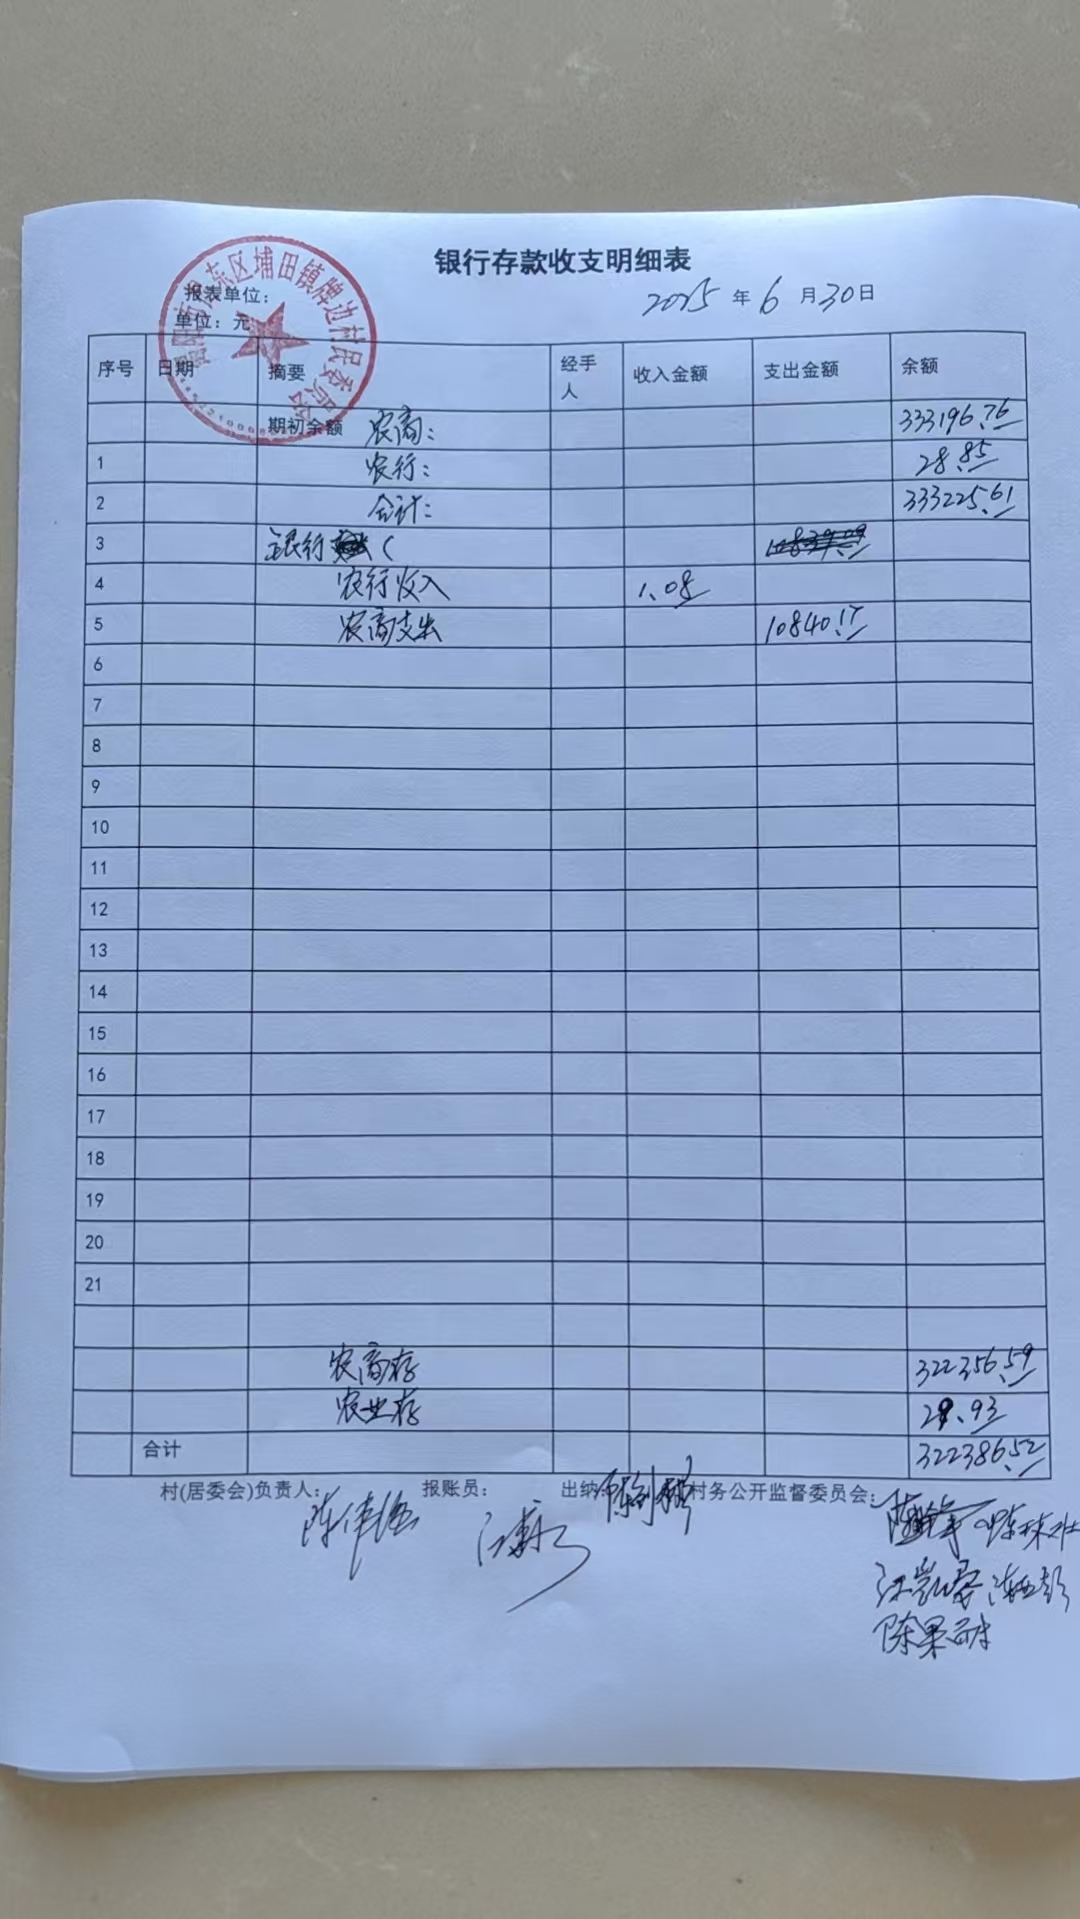 银行存款收支明细表
报表单位：
2025 年 6 月 30 日
单位：元
东区埔田镇牌边村民委员会
序号 日期 摘要 经手人 收入金额 支出金额 余额
期初余额 农商： 333196.76
1 农行： 28.85
2 合计： 333225.61
3 银行
4 农行收入 1.08
5 农商支出 10840.17
6
7
8
9
10
11
12
13
14
15
16
17
18
19
20
21
农商存 322356.59
农业存 29.93
合计 322386.52
村(居委会)负责人： 报账员： 出纳 村务公开监督委员会：